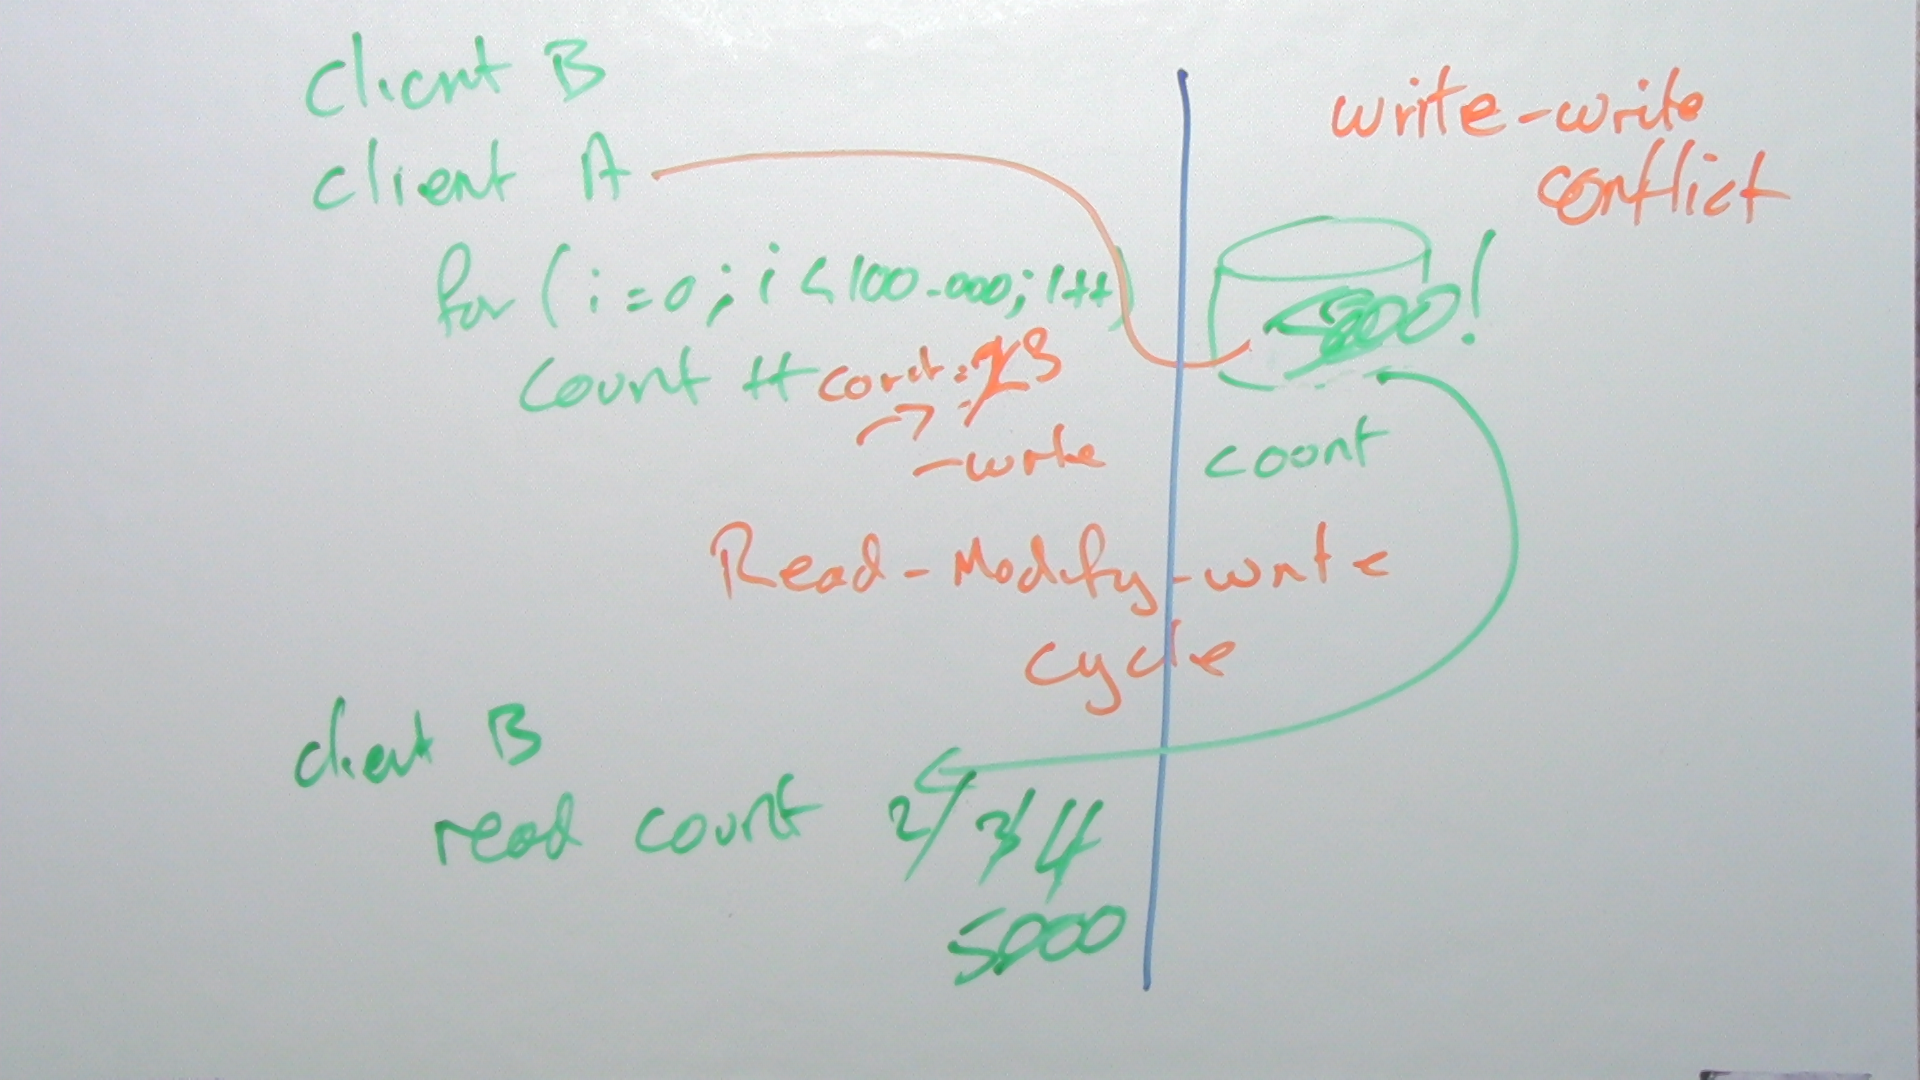 client B
client A
for (i=0; i<100.000; i++)
count ++ count:
-write
Read-Modify-write
cycle
client B
read count 2/3/4
5000
write-write
conflict
5000!
count